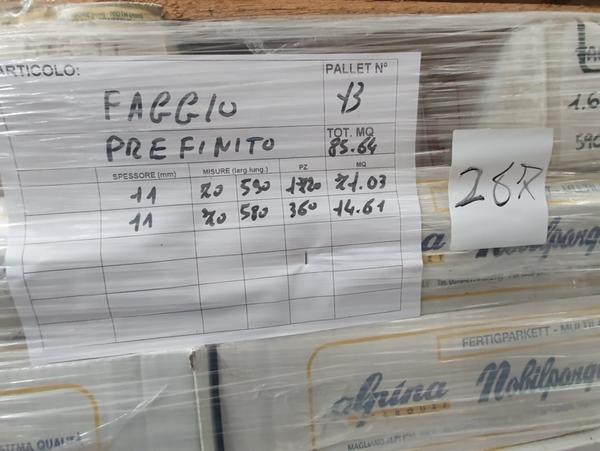 ARTICOLO:
PALLET N°
FAGGIO
13
PREFINITO
TOT. MQ
85.64
SPESSORE (mm) MISURE (larg.lung.) PZ MQ
11 70 590 1720 71.03
11 70 580 360 14.61
287
1.6
590
alpina Nobilparq
FERTIGPARKETT - MULTI
alpina Nobilparq
PARQUET
MAGLIANO ALPI
STEMA QUALIT